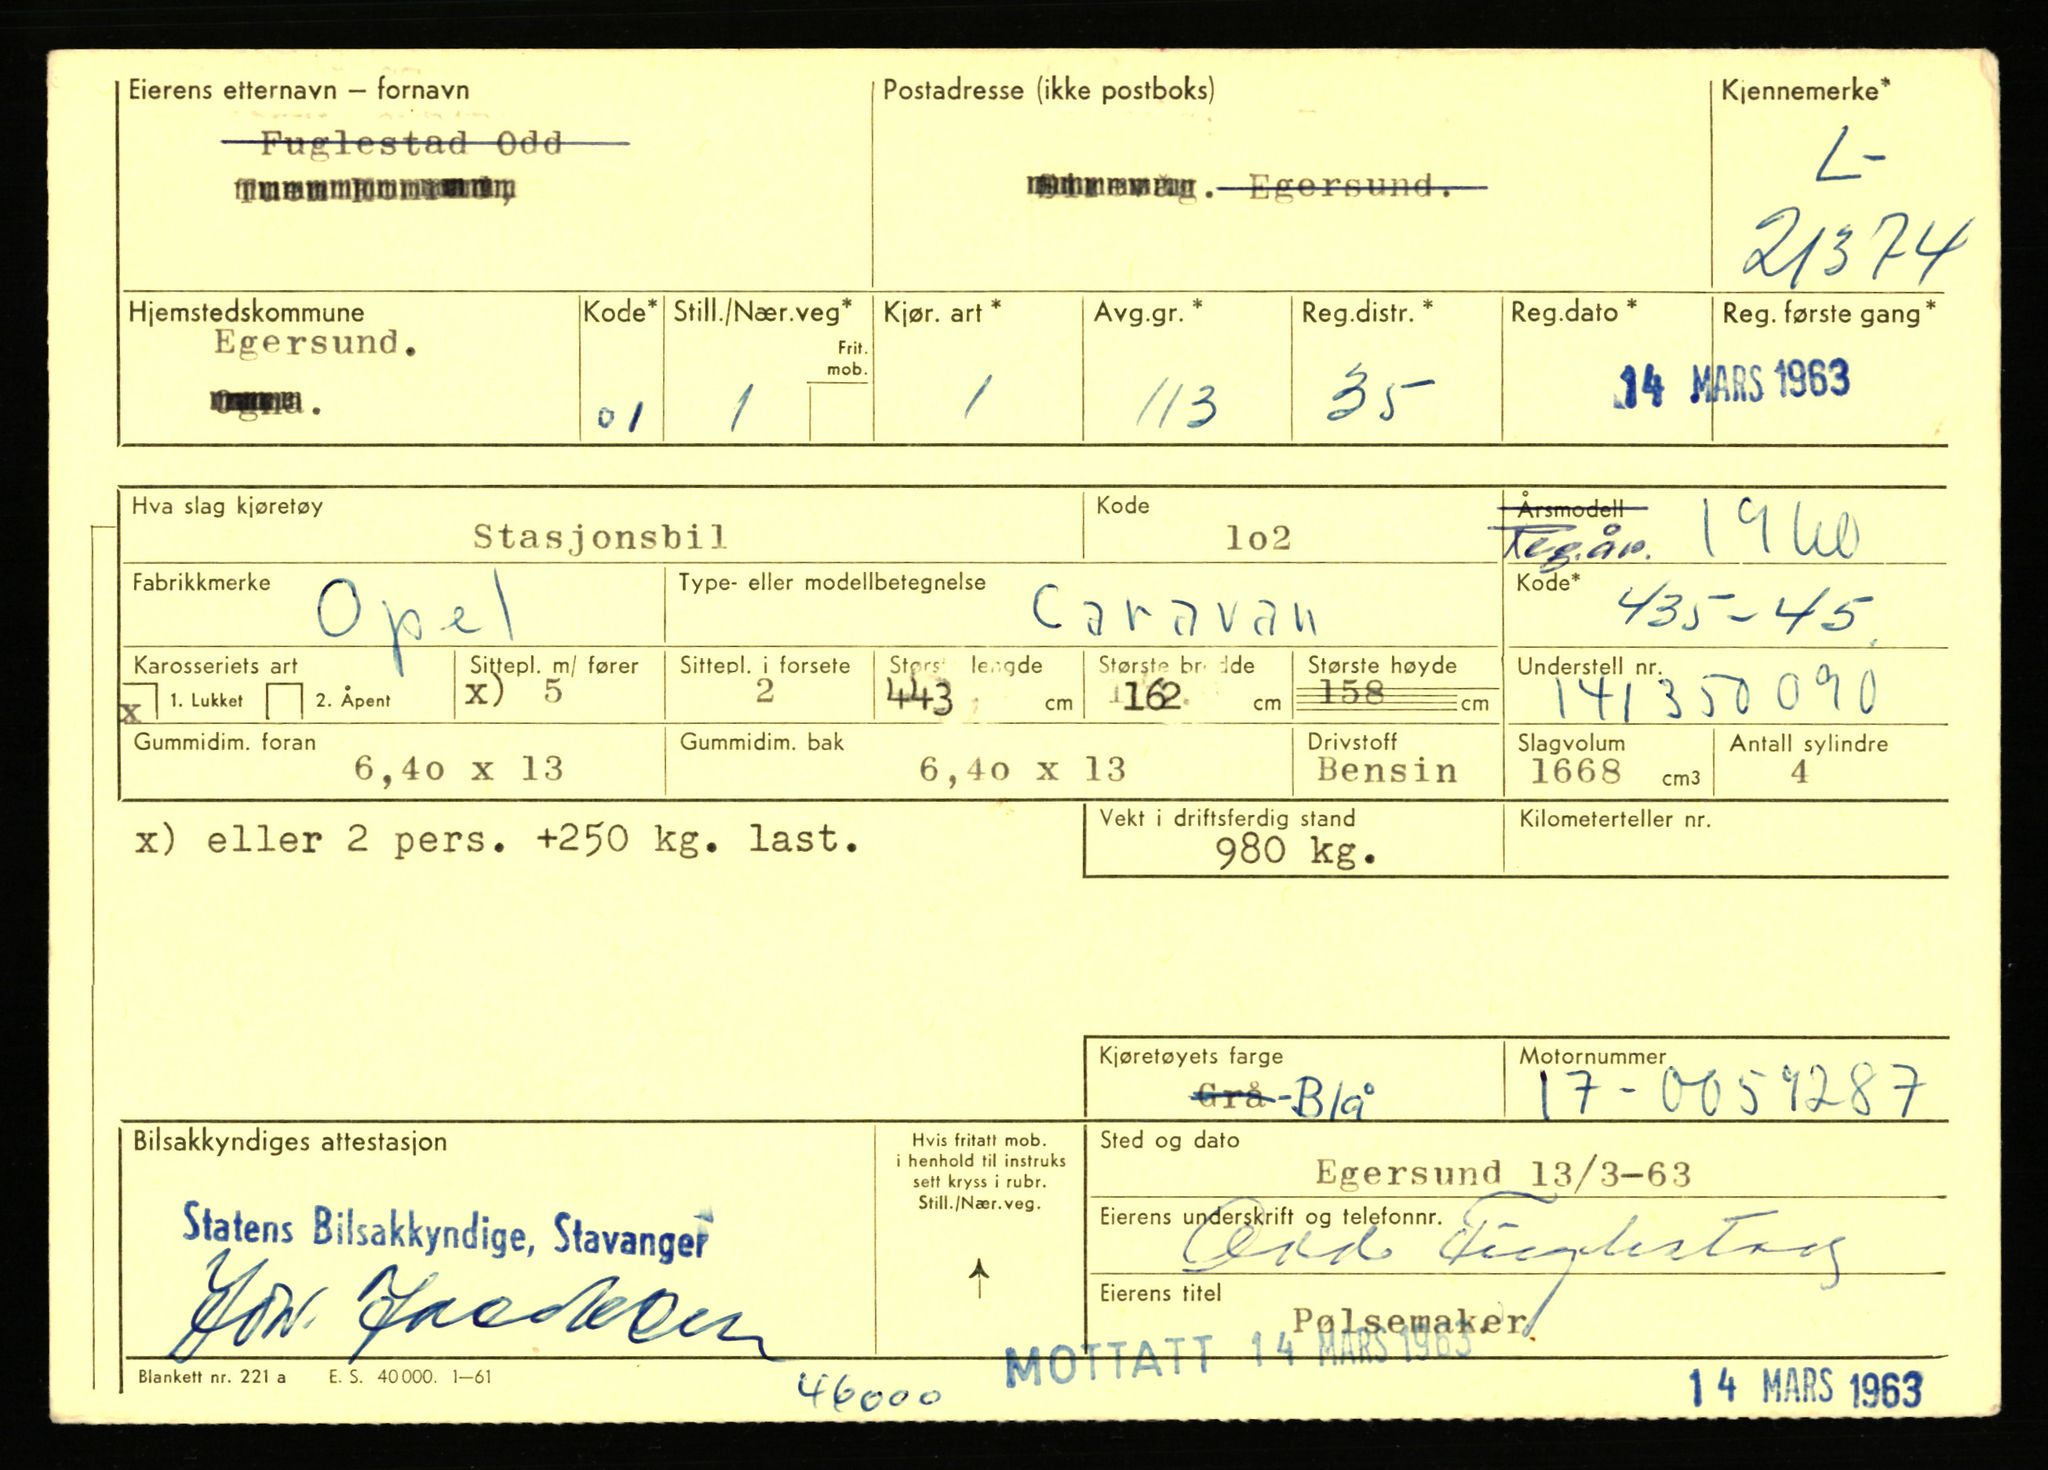 Eierens etternavn – fornavn
Fuglestad Odd
Postadresse (ikke postboks)
Egersund.
Kjennemerke*
L-
21374
Hjemstedskommune
Egersund.
Ogna.
Kode*
01
Still./Nær.veg*
Frit.
mob.
1
Kjør. art *
1
Avg.gr. *
113
Reg.distr. *
35
Reg.dato *
Reg. første gang *
14 MARS 1963
Hva slag kjøretøy
Stasjonsbil
Kode
1o2
Årsmodell
Reg.år. 1960
Fabrikkmerke
Opel
Type- eller modellbetegnelse
Caravan
Kode*
435-45
Karosseriets art
x 1. Lukket 2. Åpent
Sittepl. m/ fører
x) 5
Sittepl. i forsete
2
Størst lengde
443 cm
Største bredde
162 cm
Største høyde
158 cm
Understell nr.
141350090
Gummidim. foran
6,4o x 13
Gummidim. bak
6,4o x 13
Drivstoff
Bensin
Slagvolum
1668 cm3
Antall sylindre
4
x) eller 2 pers. +250 kg. last.
Vekt i driftsferdig stand
980 kg.
Kilometerteller nr.
Kjøretøyets farge
Grå-Blå
Motornummer
17-0059287
Bilsakkyndiges attestasjon
Statens Bilsakkyndige, Stavanger
Hvis fritatt mob.
i henhold til instruks
sett kryss i rubr.
Still./Nær.veg.
Sted og dato
Egersund 13/3-63
Eierens underskrift og telefonnr.
Odd Fuglestad
Eierens titel
Pølsemaker
MOTTATT 14 MARS 1963
Blankett nr. 221 a E. S. 40 000. 1–61
46000
14 MARS 1963